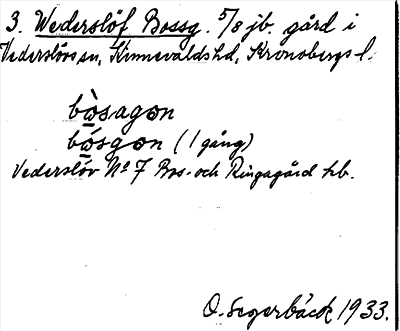 3. Wederslöf Bossg. 5/8 jb. gård i
Vederslövs sn, Kinnevalds hd, Kronobergs l.
bo̲̊̀sagơn
bo̲̊́sgơn (1 gång)
Vederslöv Nº 7 Bos- och Ringagård hb.
O. Segerbäck 1933.